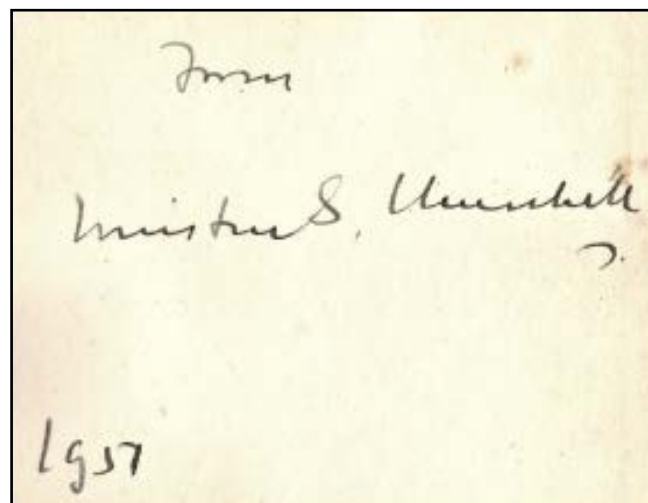 From
Winston S. Churchill
1951